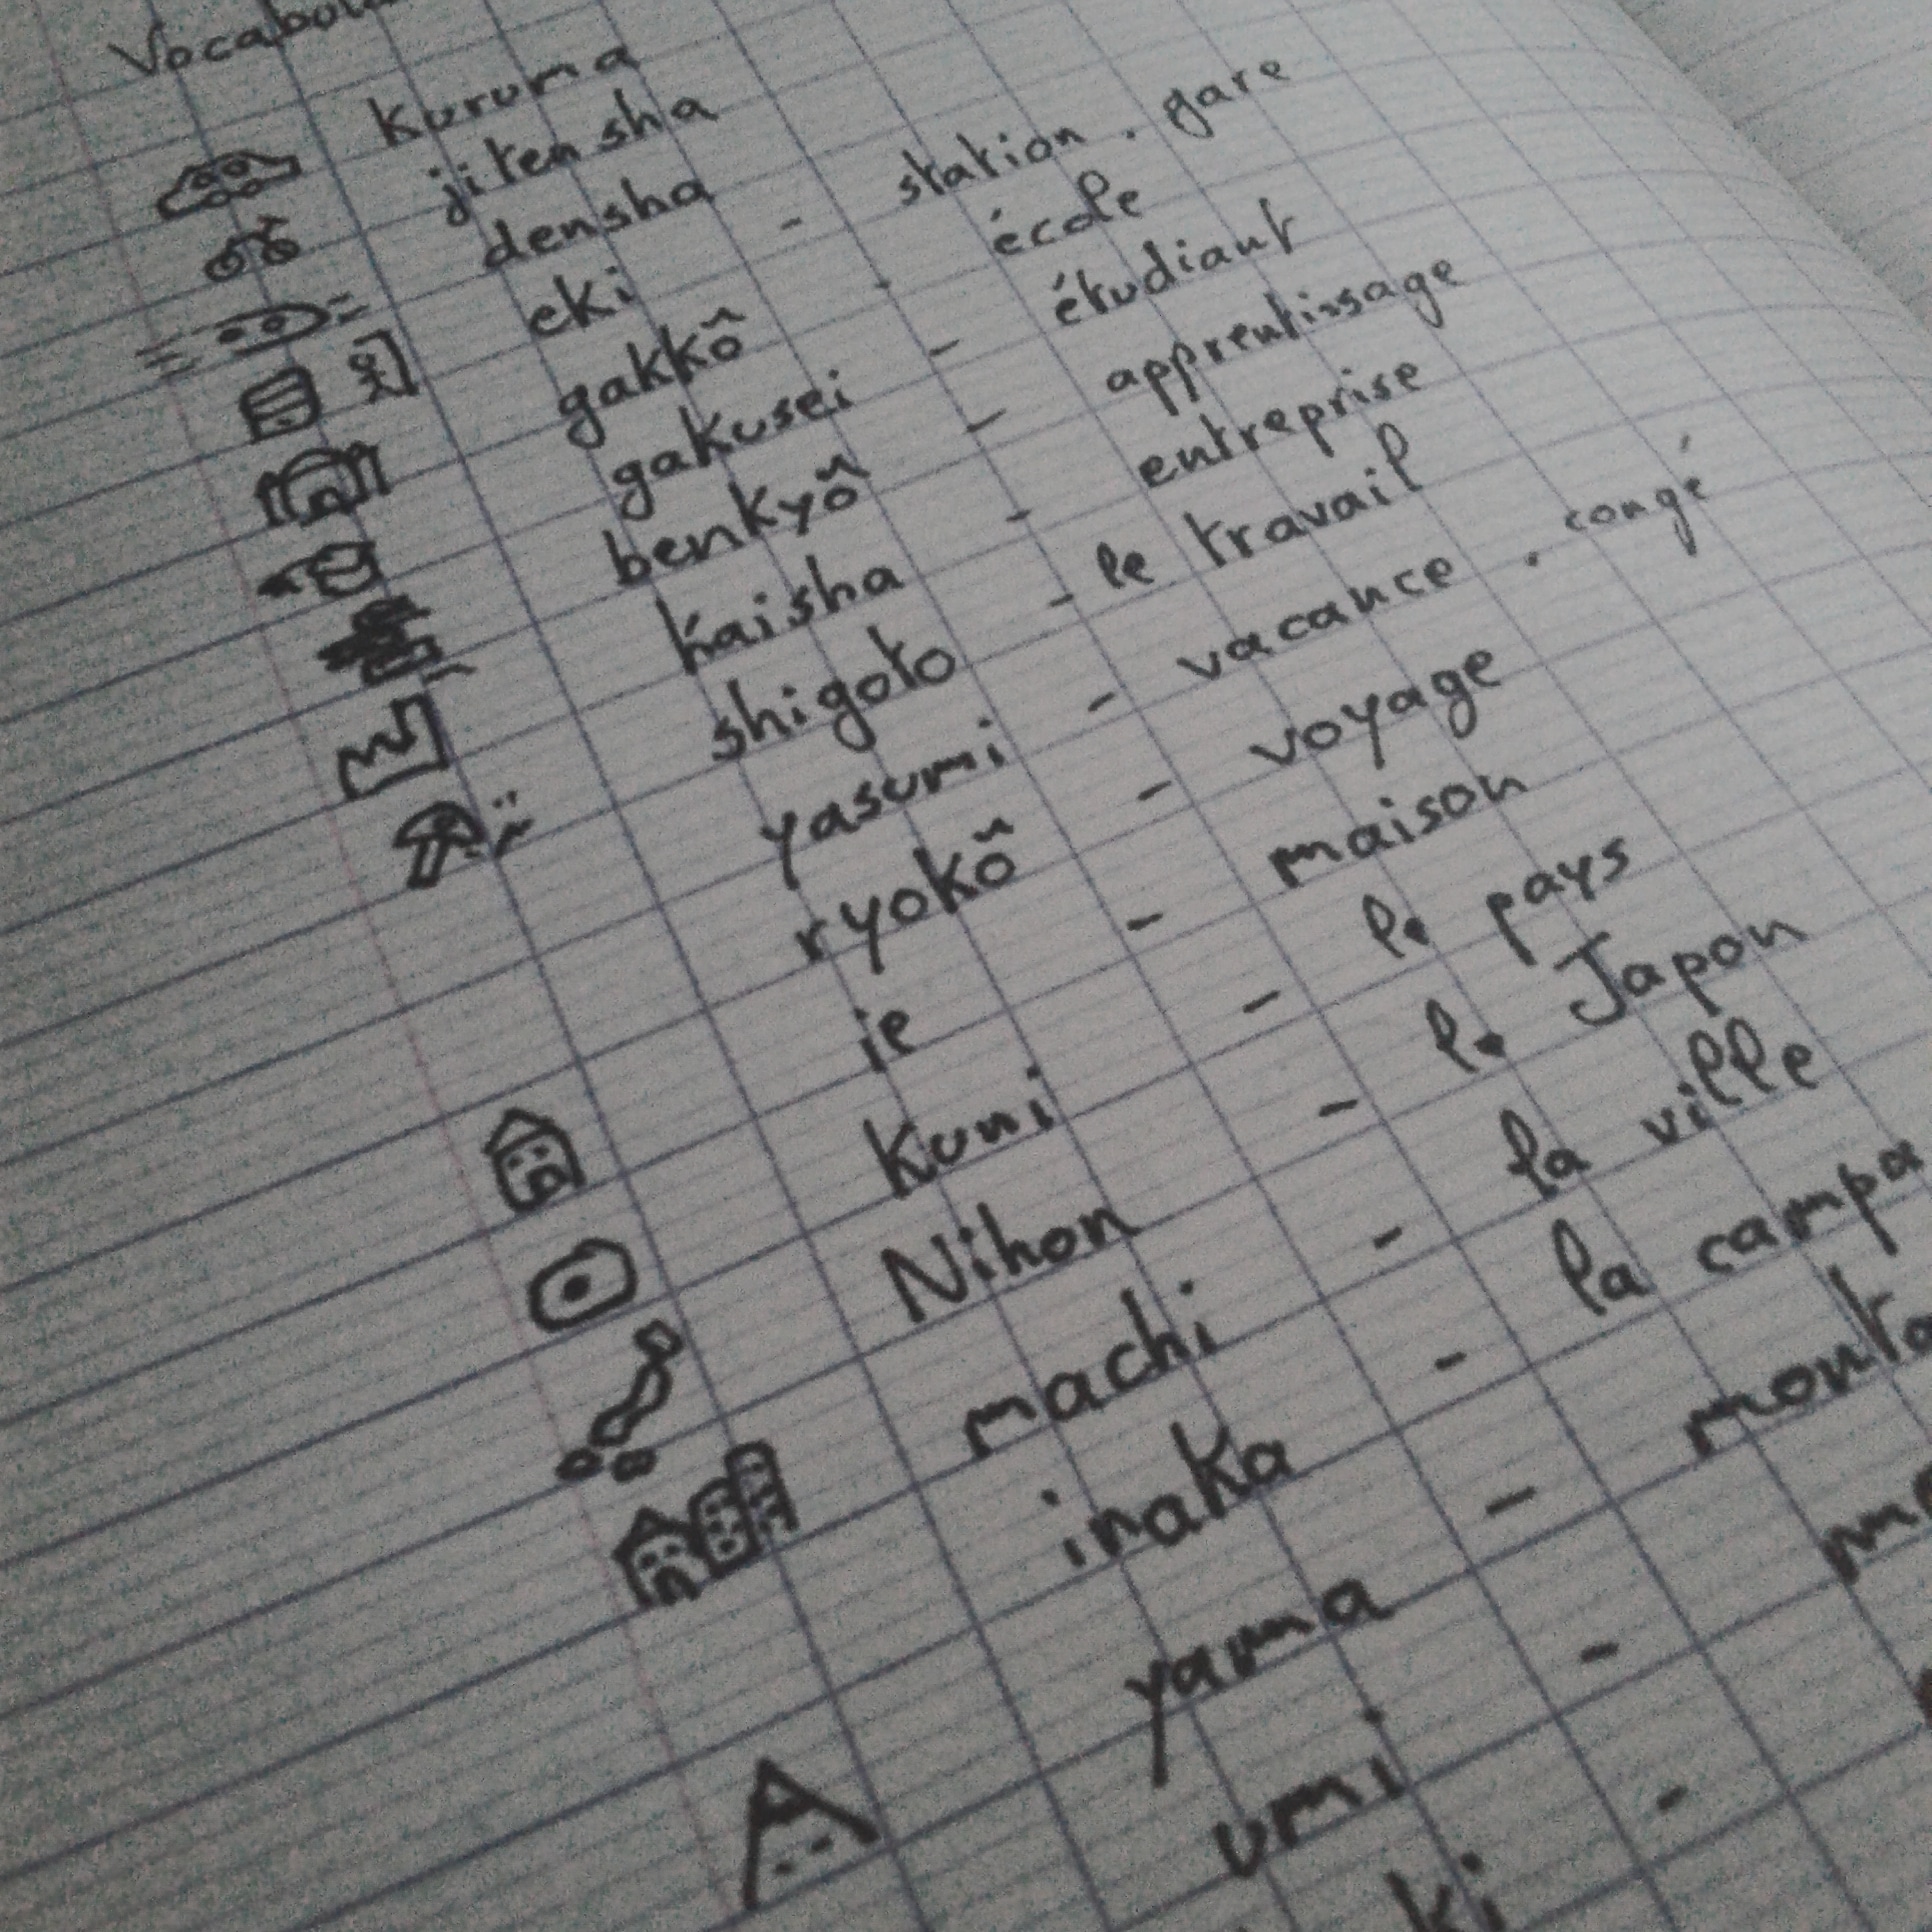 kuruma
jitensha
densha
eki - station . gare
gakkô - école
gakusei - étudiant
benkyô - apprentissage
kaisha - entreprise
shigoto - le travail
yasumi - vacance . congé
ryokô - voyage
ie - maison
kuni - le pays
Nihon - le Japon
machi - la ville
inaka - la campa
yama - monta
umi -
ki -